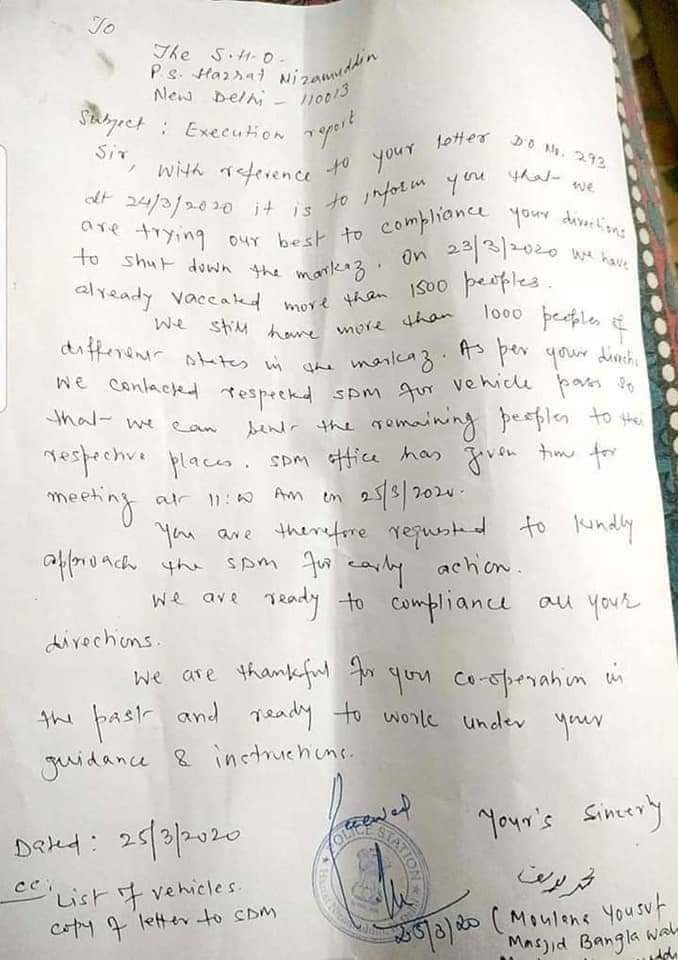 To
The S.H.O.
P.S. Hazrat Nizamuddin
New Delhi - 110013
Subject : Execution report
Sir, With reference to your letter D.O No. 293
dt 24/3/2020 it is to inform you that we
are trying our best to compliance your directions
to shut down the markaz. On 23/3/2020 we have
already vaccated more than 1500 peoples.
We still have more than 1000 peoples of
different states in the markaz. As per your directi
we contacted respected SDM for vehicle pass so
that we can send the remaining peoples to their
respective places. SDM office has given time for
meeting at 11:00 AM on 25/3/2020.
You are therefore requested to kindly
approach the SDM for early action.
We are ready to compliance all your
directions.
We are thankful for you co-operation in
the past and ready to work under your
guidance & instructions.
Dated : 25/3/2020
cc: List of vehicles.
copy of letter to SDM
Received
POLICE STATION
25/3/20
Your's Sincerly
محمد يوسف
(Moulana Yousuf
Masjid Bangla Wali